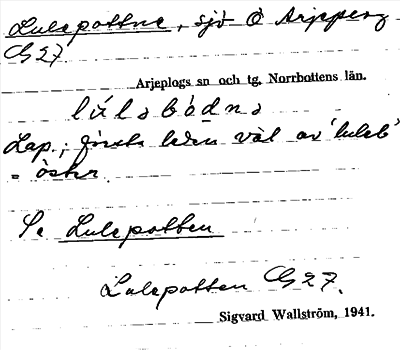 Lulepottne, sjö Ö Arjeplog
CG27
Arjeplogs sn och tg. Norrbottens län.
lúləbòdnə
Lap.; första leden väl av 'luleb'
= öster.
Se Lulepotten
Lulepotten CG27.
Sigvard Wallström, 1941.